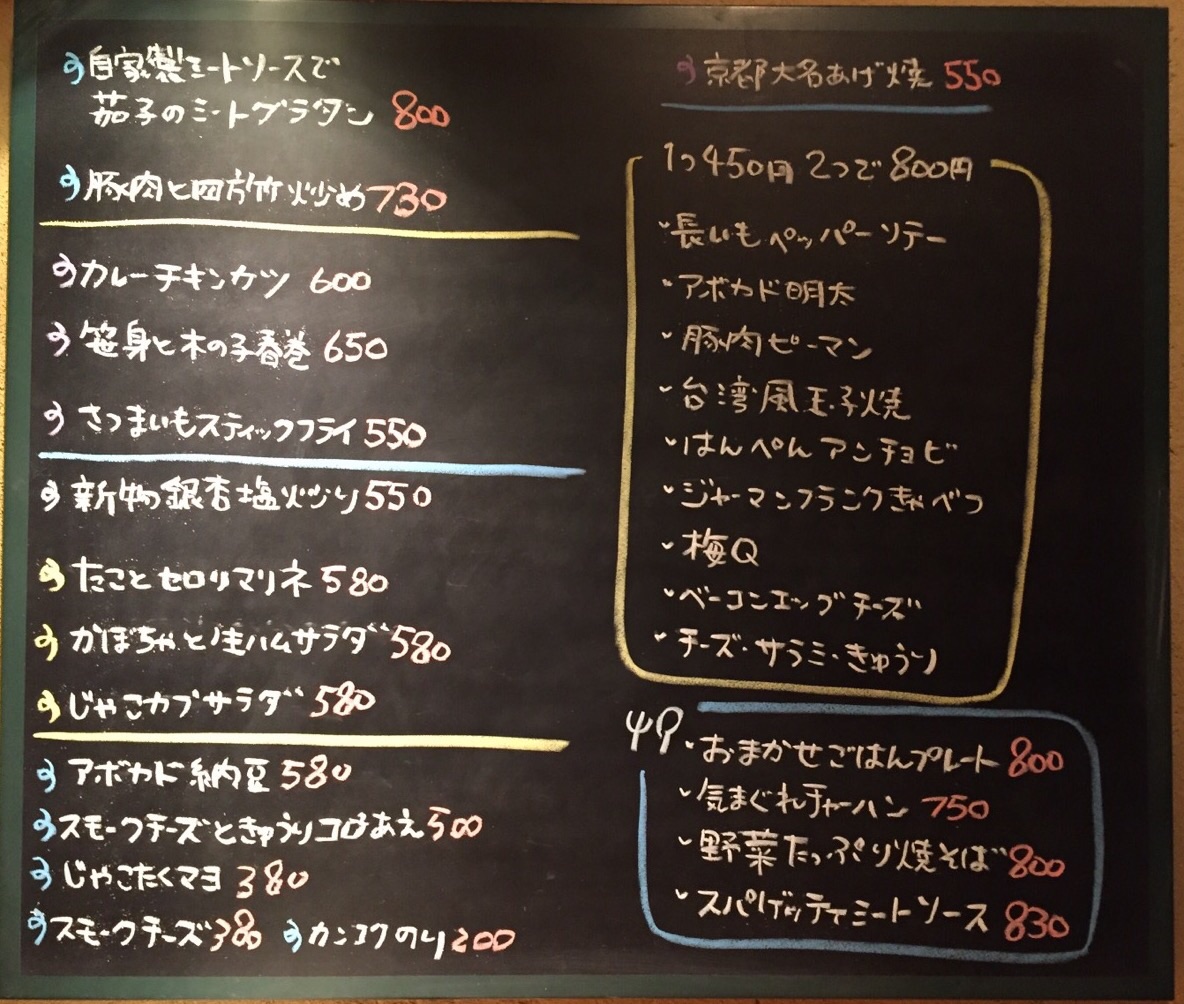 自家製ミートソースで
茄子のミートグラタン 800
豚肉と四方竹炒め 730
カレーチキンカツ 600
笹身と木の子春巻 650
さつまいもスティックフライ 550
新物銀杏塩炒り 550
たことセロリマリネ 580
かぼちゃと生ハムサラダ 580
じゃこカブサラダ 580
アボカド納豆 580
スモークチーズときゅうりコロはあえ 500
じゃこたくマヨ 380
スモークチーズ 380 カンコクのり 200
京都大名あげ焼 550
1つ450円 2つで800円
・長いもペッパーソテー
・アボカド明太
・豚肉ピーマン
・台湾風玉子焼
・はんぺんアンチョビ
・ジャーマンフランクきゃべつ
・梅Q
・ベーコンエッグチーズ
・チーズ・サラミ・きゅうり
・おまかせごはんプレート 800
・気まぐれチャーハン 750
・野菜たっぷり焼そば 800
・スパゲッティミートソース 830